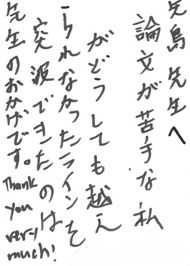 矢島先生へ
論文が苦手な私
がどうしても越え
られなかったラインを
突破できたのは
先生のおかげです。
Thank
you
very
much!